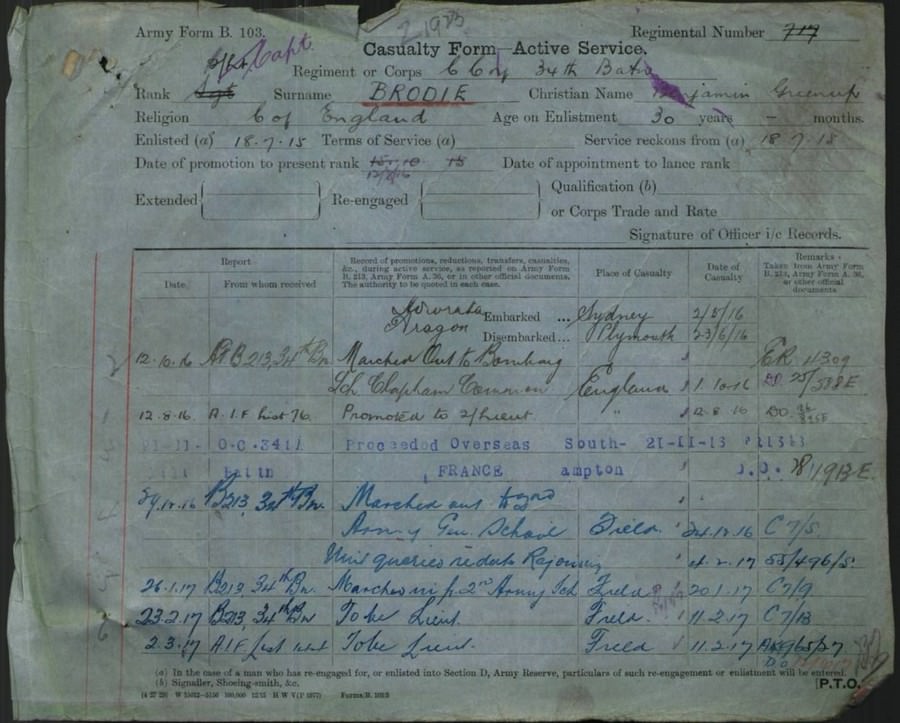 Army Form B. 103.
Regimental Number 717
Casualty Form—Active Service.
Capt.
Regiment or Corps C Coy 34th Battn
Rank Sgt Surname BRODIE Christian Name Benjamin Greenup
Religion C of England Age on Enlistment 30 years — months.
Enlisted (a) 18.7.15 Terms of Service (a) Service reckons from (a) 18.7.15
Date of promotion to present rank 12/8/16 Date of appointment to lance rank
Extended Re-engaged Qualification (b)
or Corps Trade and Rate
Signature of Officer i/c Records.
Report
Date From whom received
Record of promotions, reductions, transfers, casualties, &c., during active service, as reported on Army Form B. 213, Army Form A. 36, or in other official documents. The authority to be quoted in each case.
Place of Casualty
Date of Casualty
Remarks
Taken from Army Form B. 213, Army Form A. 36, or other official documents
Embarked ... Sydney 2/5/16
Aragon Disembarked ... Plymouth 23/6/16
12.10.16 AF B213, 34th Bn Marched Out to Bombing " CR 4309
Sch Clapham Common England 1.10.16 DO. 25/588E
12.8.16. A.I.F List 76. Promoted to 2/Lieut. " 12 8 16 DO.
21-11- O.C.34th Proceeded Overseas South- 21-11-16
Battn FRANCE ampton 78/19BE
B213 34th Bn. Marched out to 2nd
Army Gen. School Field. 24.12.16 C7/5
Rejoining 2.17 55/496/5
26.1.17 B213. 34th Bn. Marched in f. 2nd Army Sch Field 20.1.17 C7/9
23.2.17 B213, 34th Bn To be Lieut. Field. 11.2.17 C7/13
2.3.17 A.I.F List To be Lieut. Field 11.2.17
(a) In the case of a man who has re-engaged for, or enlisted into Section D, Army Reserve, particulars of such re-engagement or enlistment will be entered.
(b) Signaller, Shoeing-smith, &c.
[P.T.O.